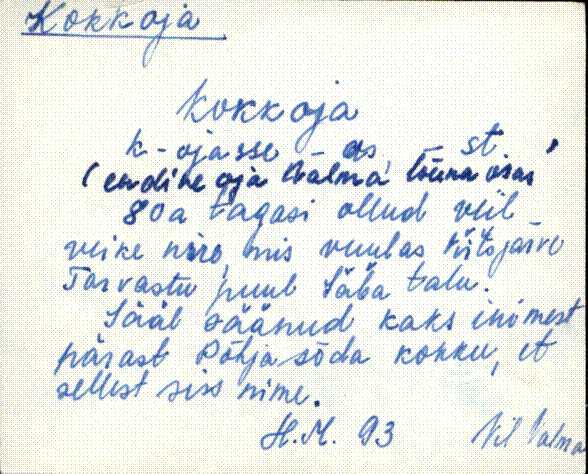 Kokkoja
Kokkoja
k-ojasse -as, -st
(endine oja Valma lõuna osas
80a tagasi ollud veil
veike niro, mis vuulas Võtsjärve
Tarvastu puul Sába talu.
Sääl säänud kaks inimest
pärast Põhja sõda kokku, et
sellest siss nime.
H.M. 93 Vil Valma